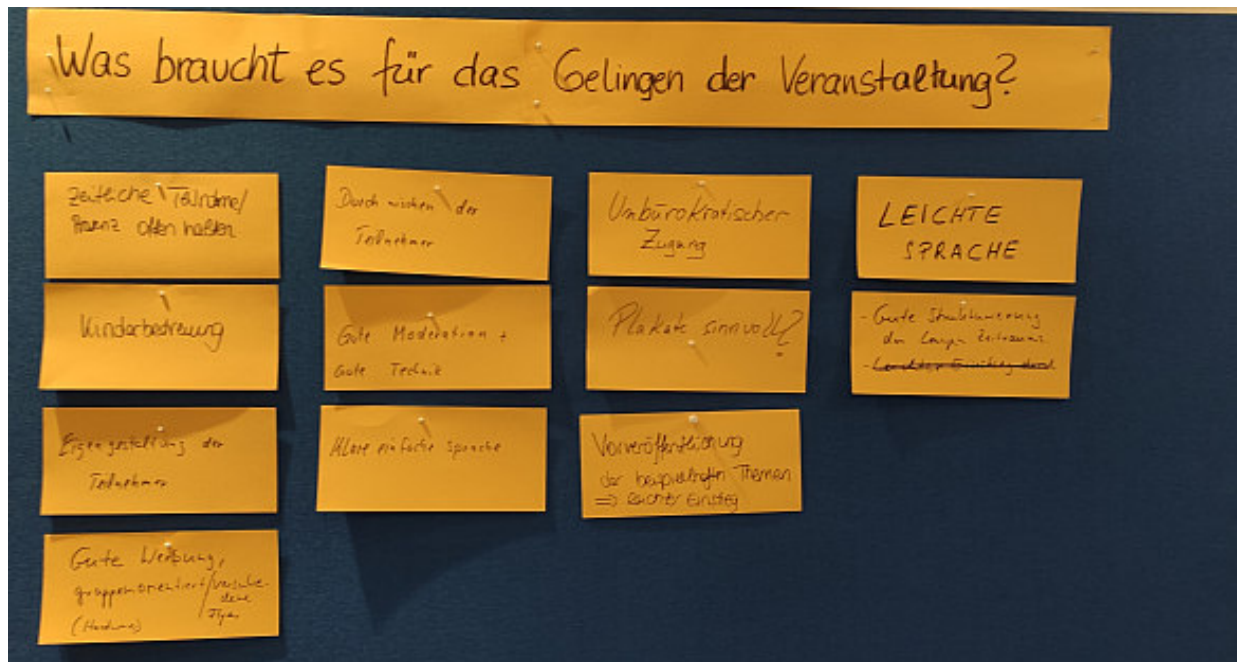 Was braucht es für das Gelingen der Veranstaltung?
Zeitliche Teilnahme/
Präsenz offen halten
Kinderbetreuung
Eigengestaltung der
Teilnehmer
Gute Werbung,
gruppenorientiert/verschie-
dene
Flyer
Durchmischen der
Teilnehmer
Gute Moderation +
Gute Technik
Klare einfache Sprache
Unbürokratischer
Zugang
Plakate sinnvoll?
Vorveröffentlichung
der beispielhaften Themen
=> leichter Einstieg
LEICHTE
SPRACHE
- Gute Strukturierung
des langen Zeitraums